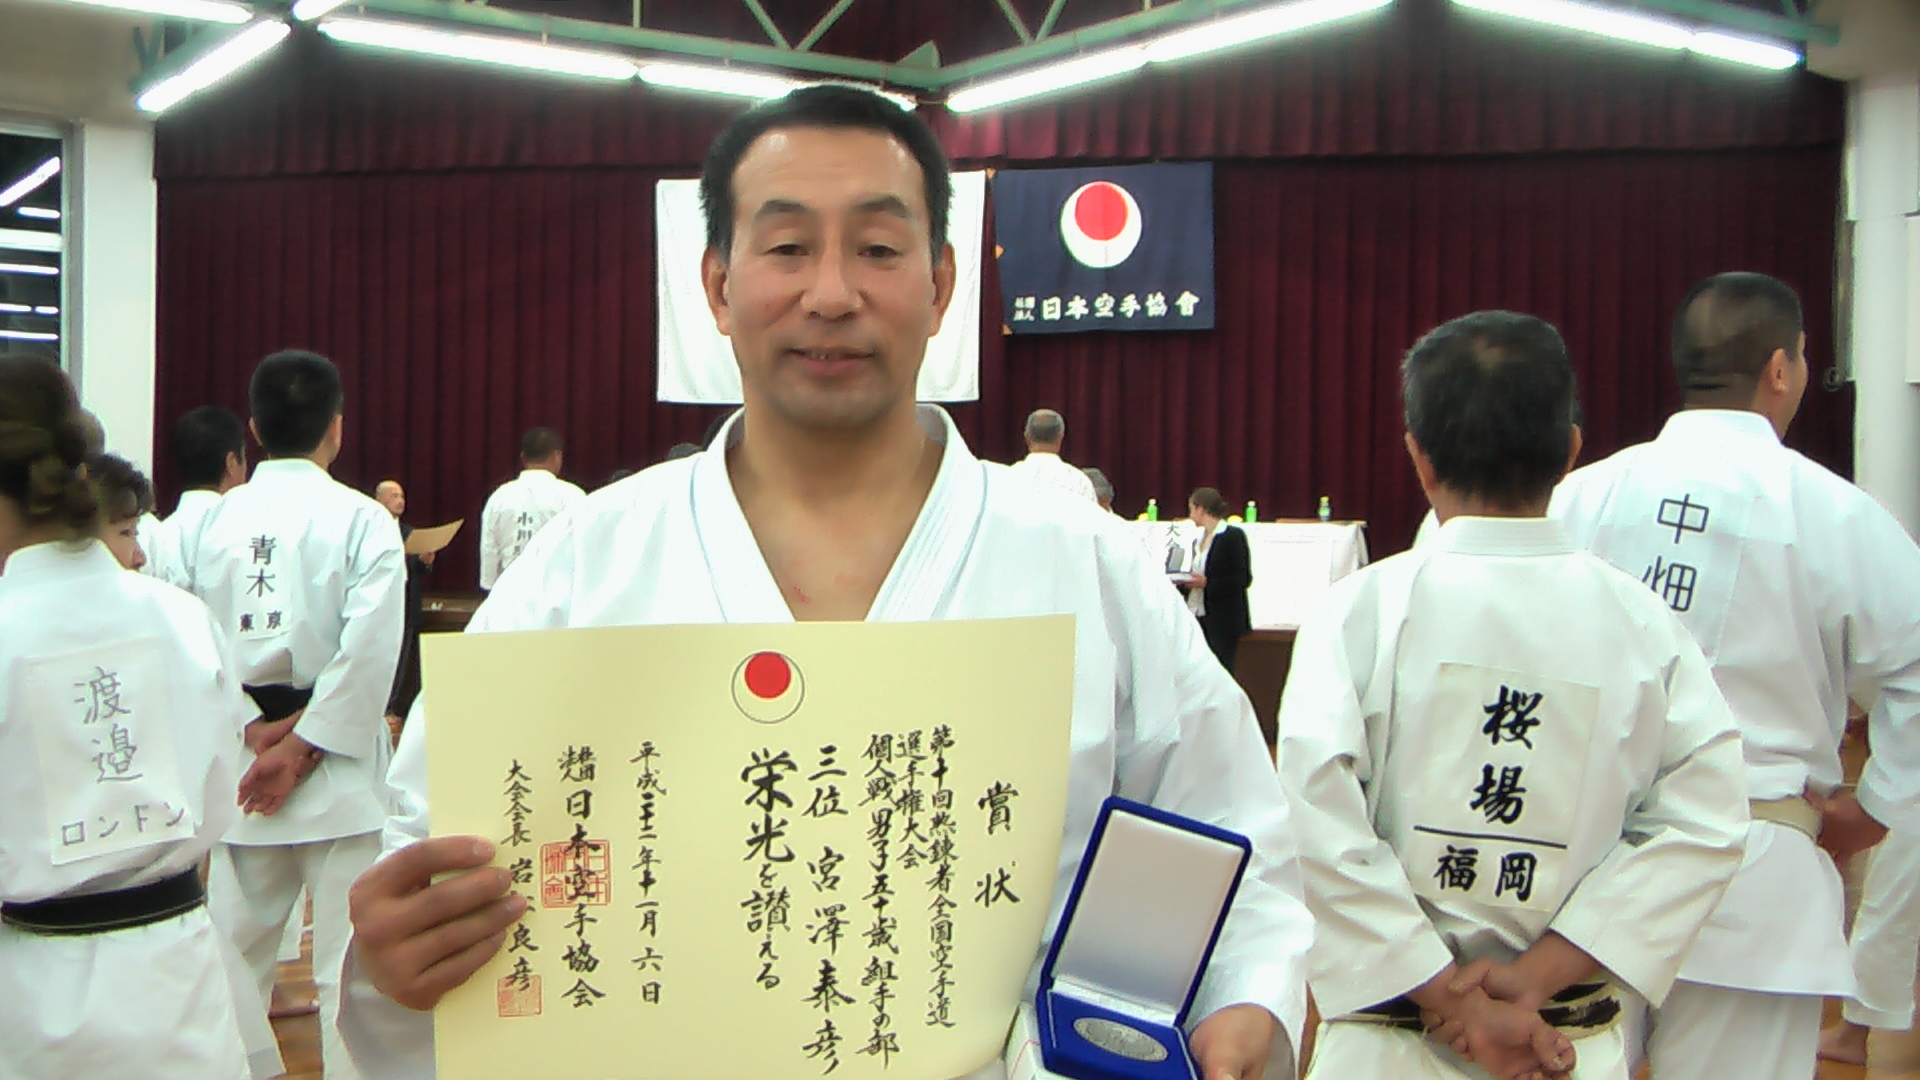 社團
法人
日本空手協會
賞状
第十回熟錬者全国空手道
選手権大会
個人戦男子五十歳組手の部
三位 宮澤泰彦
栄光を讃える
平成二十二年十一月六日
日本空手協会
大会会長
良彦
渡邉
ロンドン
青木
東京
小川
桜場
福岡
中畑